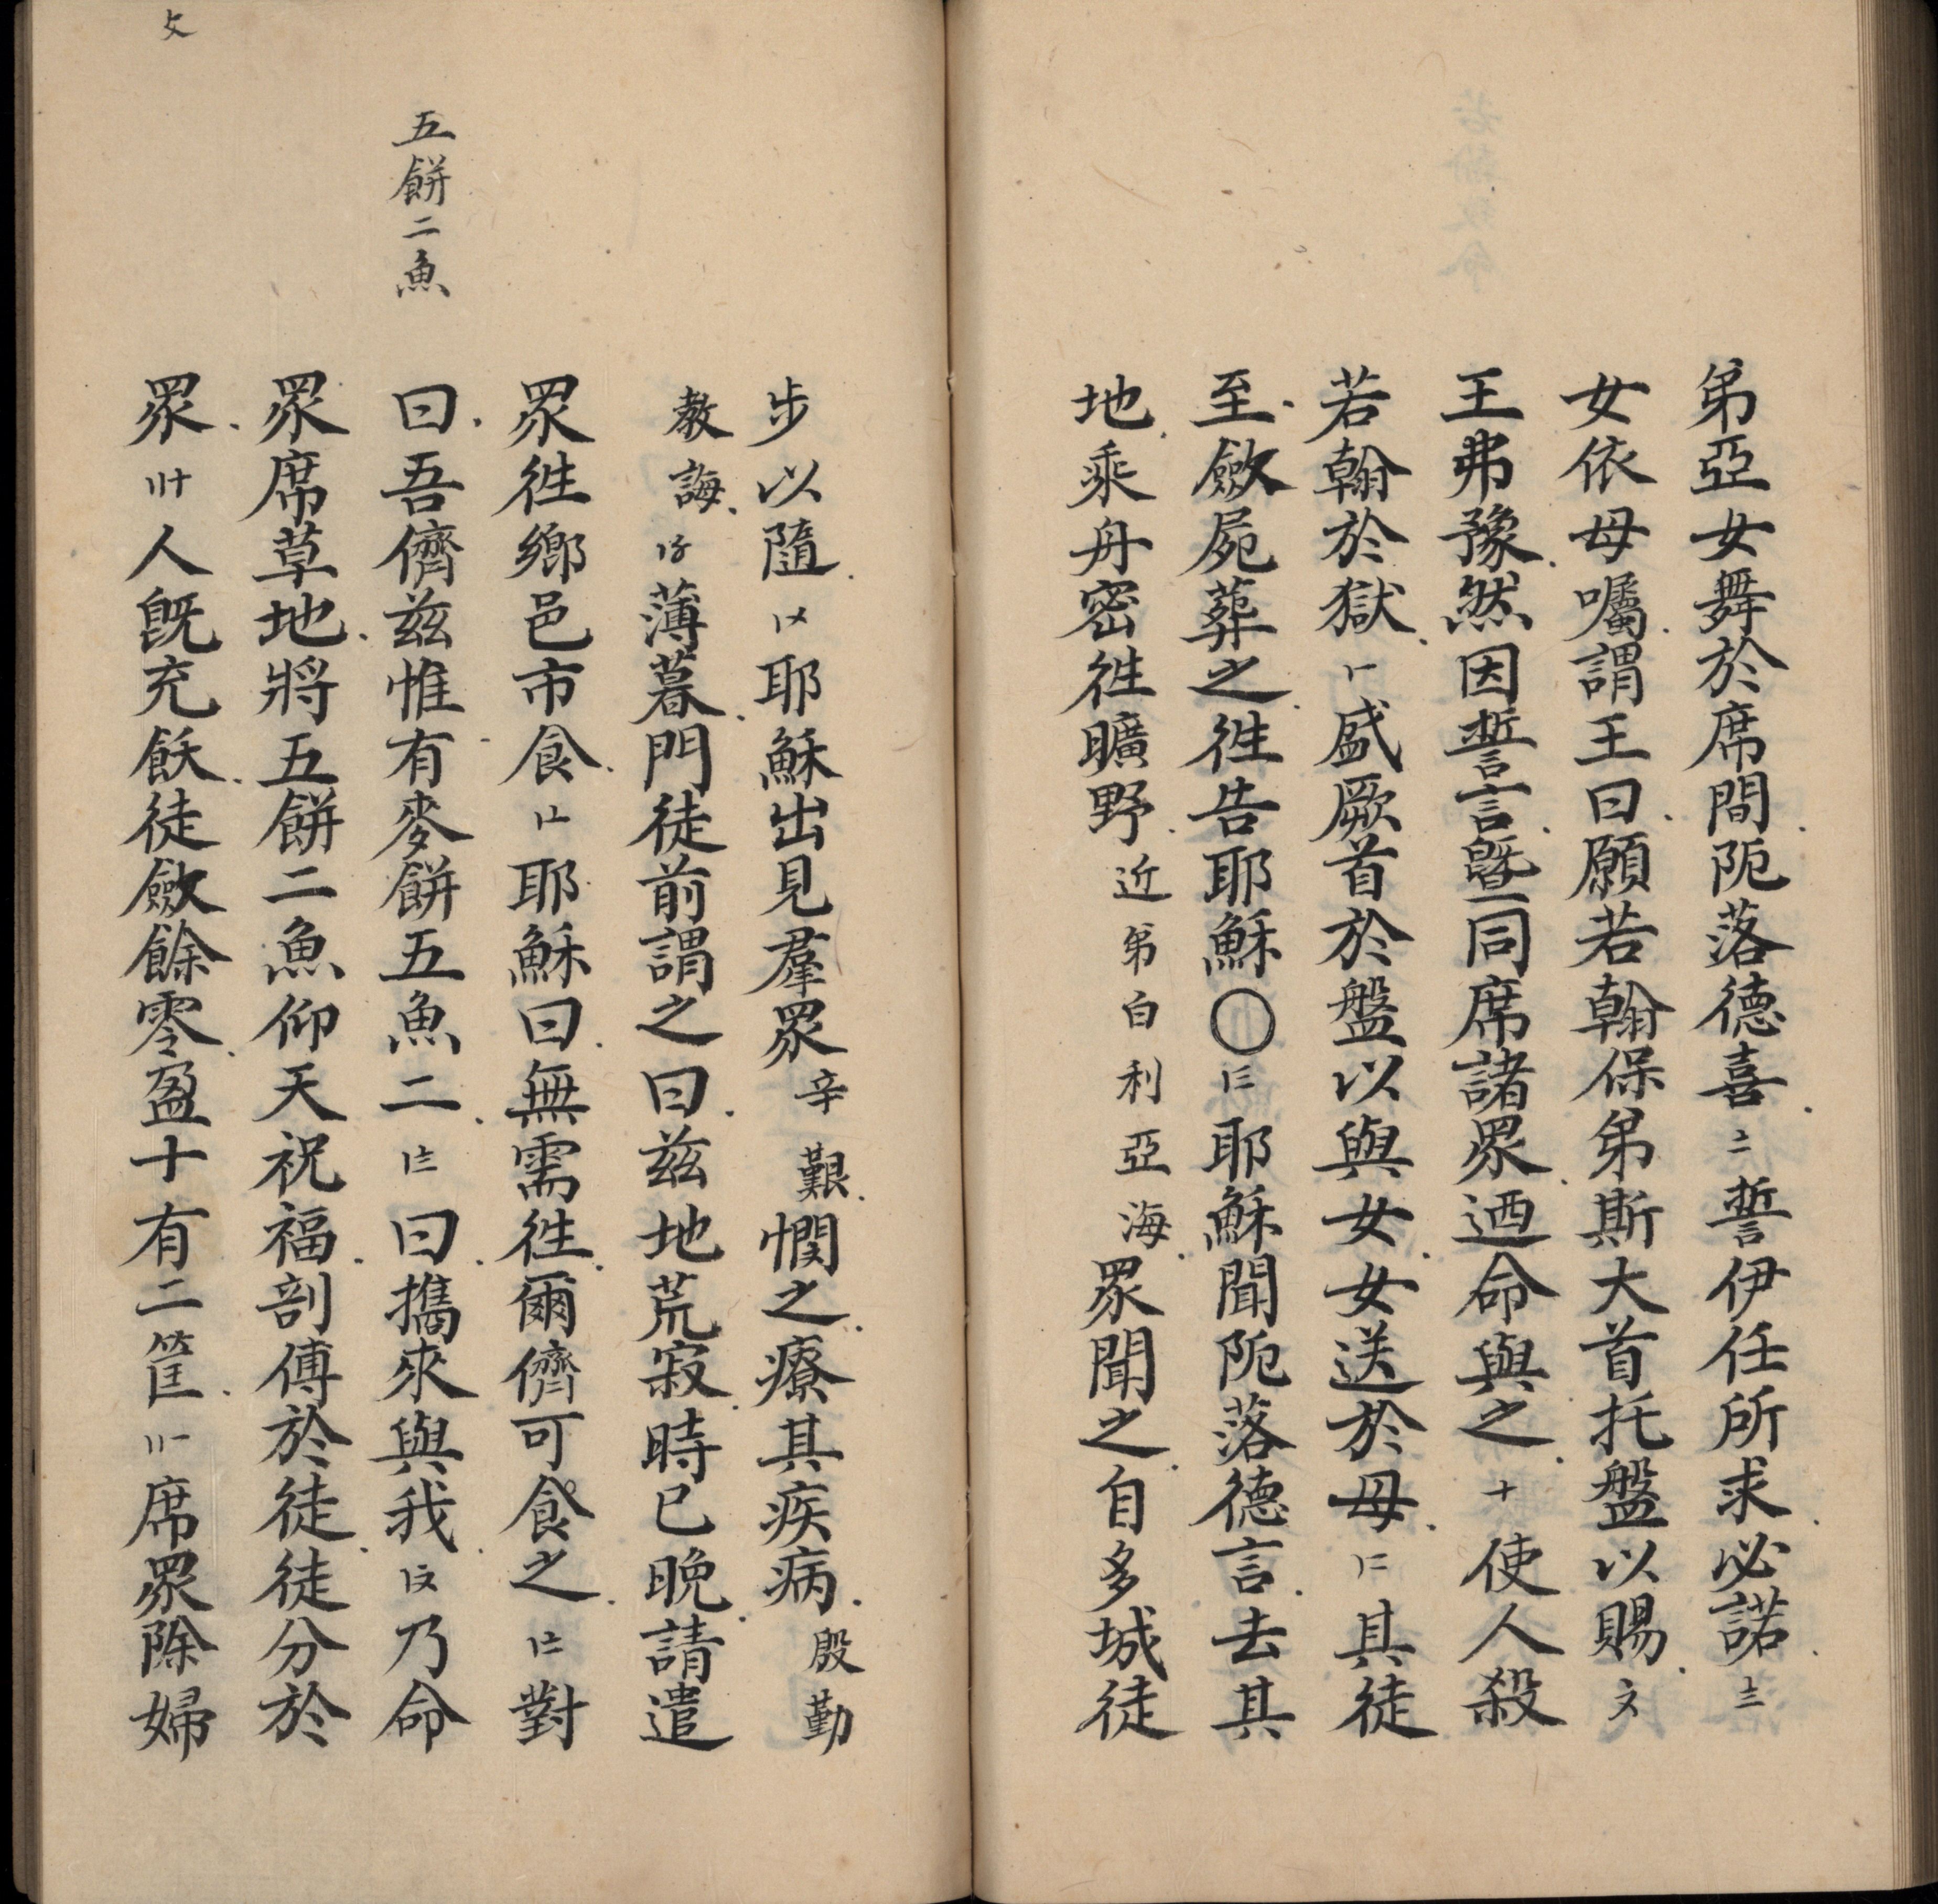 弟亞女舞於席間阨落德喜〢誓伊任所求必諾〣
女依母囑謂王曰願若翰保弟斯大首托盤以賜〩
王弗豫然因誓言曁同席諸眾迺命與之十使人殺
若翰於獄〡盛厥首於盤以與女女送於母其徒
至斂屍葬之徃告耶穌〇耶穌聞阨落德言去其
地乘舟密徃曠野近第白利亞海眾聞之自多城徒
步以隨耶穌出見羣眾辛艱憫之療其疾病殷勤
教誨薄暮門徒前謂之曰茲地荒寂時已晚請遣
眾徃鄉邑市食耶穌曰無需徃爾儕可食之對
曰吾儕茲惟有麥餅五魚二曰攜來與我乃命
五餅二魚
眾席草地將五餅二魚仰天祝福剖傅於徒徒分於
眾人旣充飫徒斂餘零盈十有二筐席眾除婦